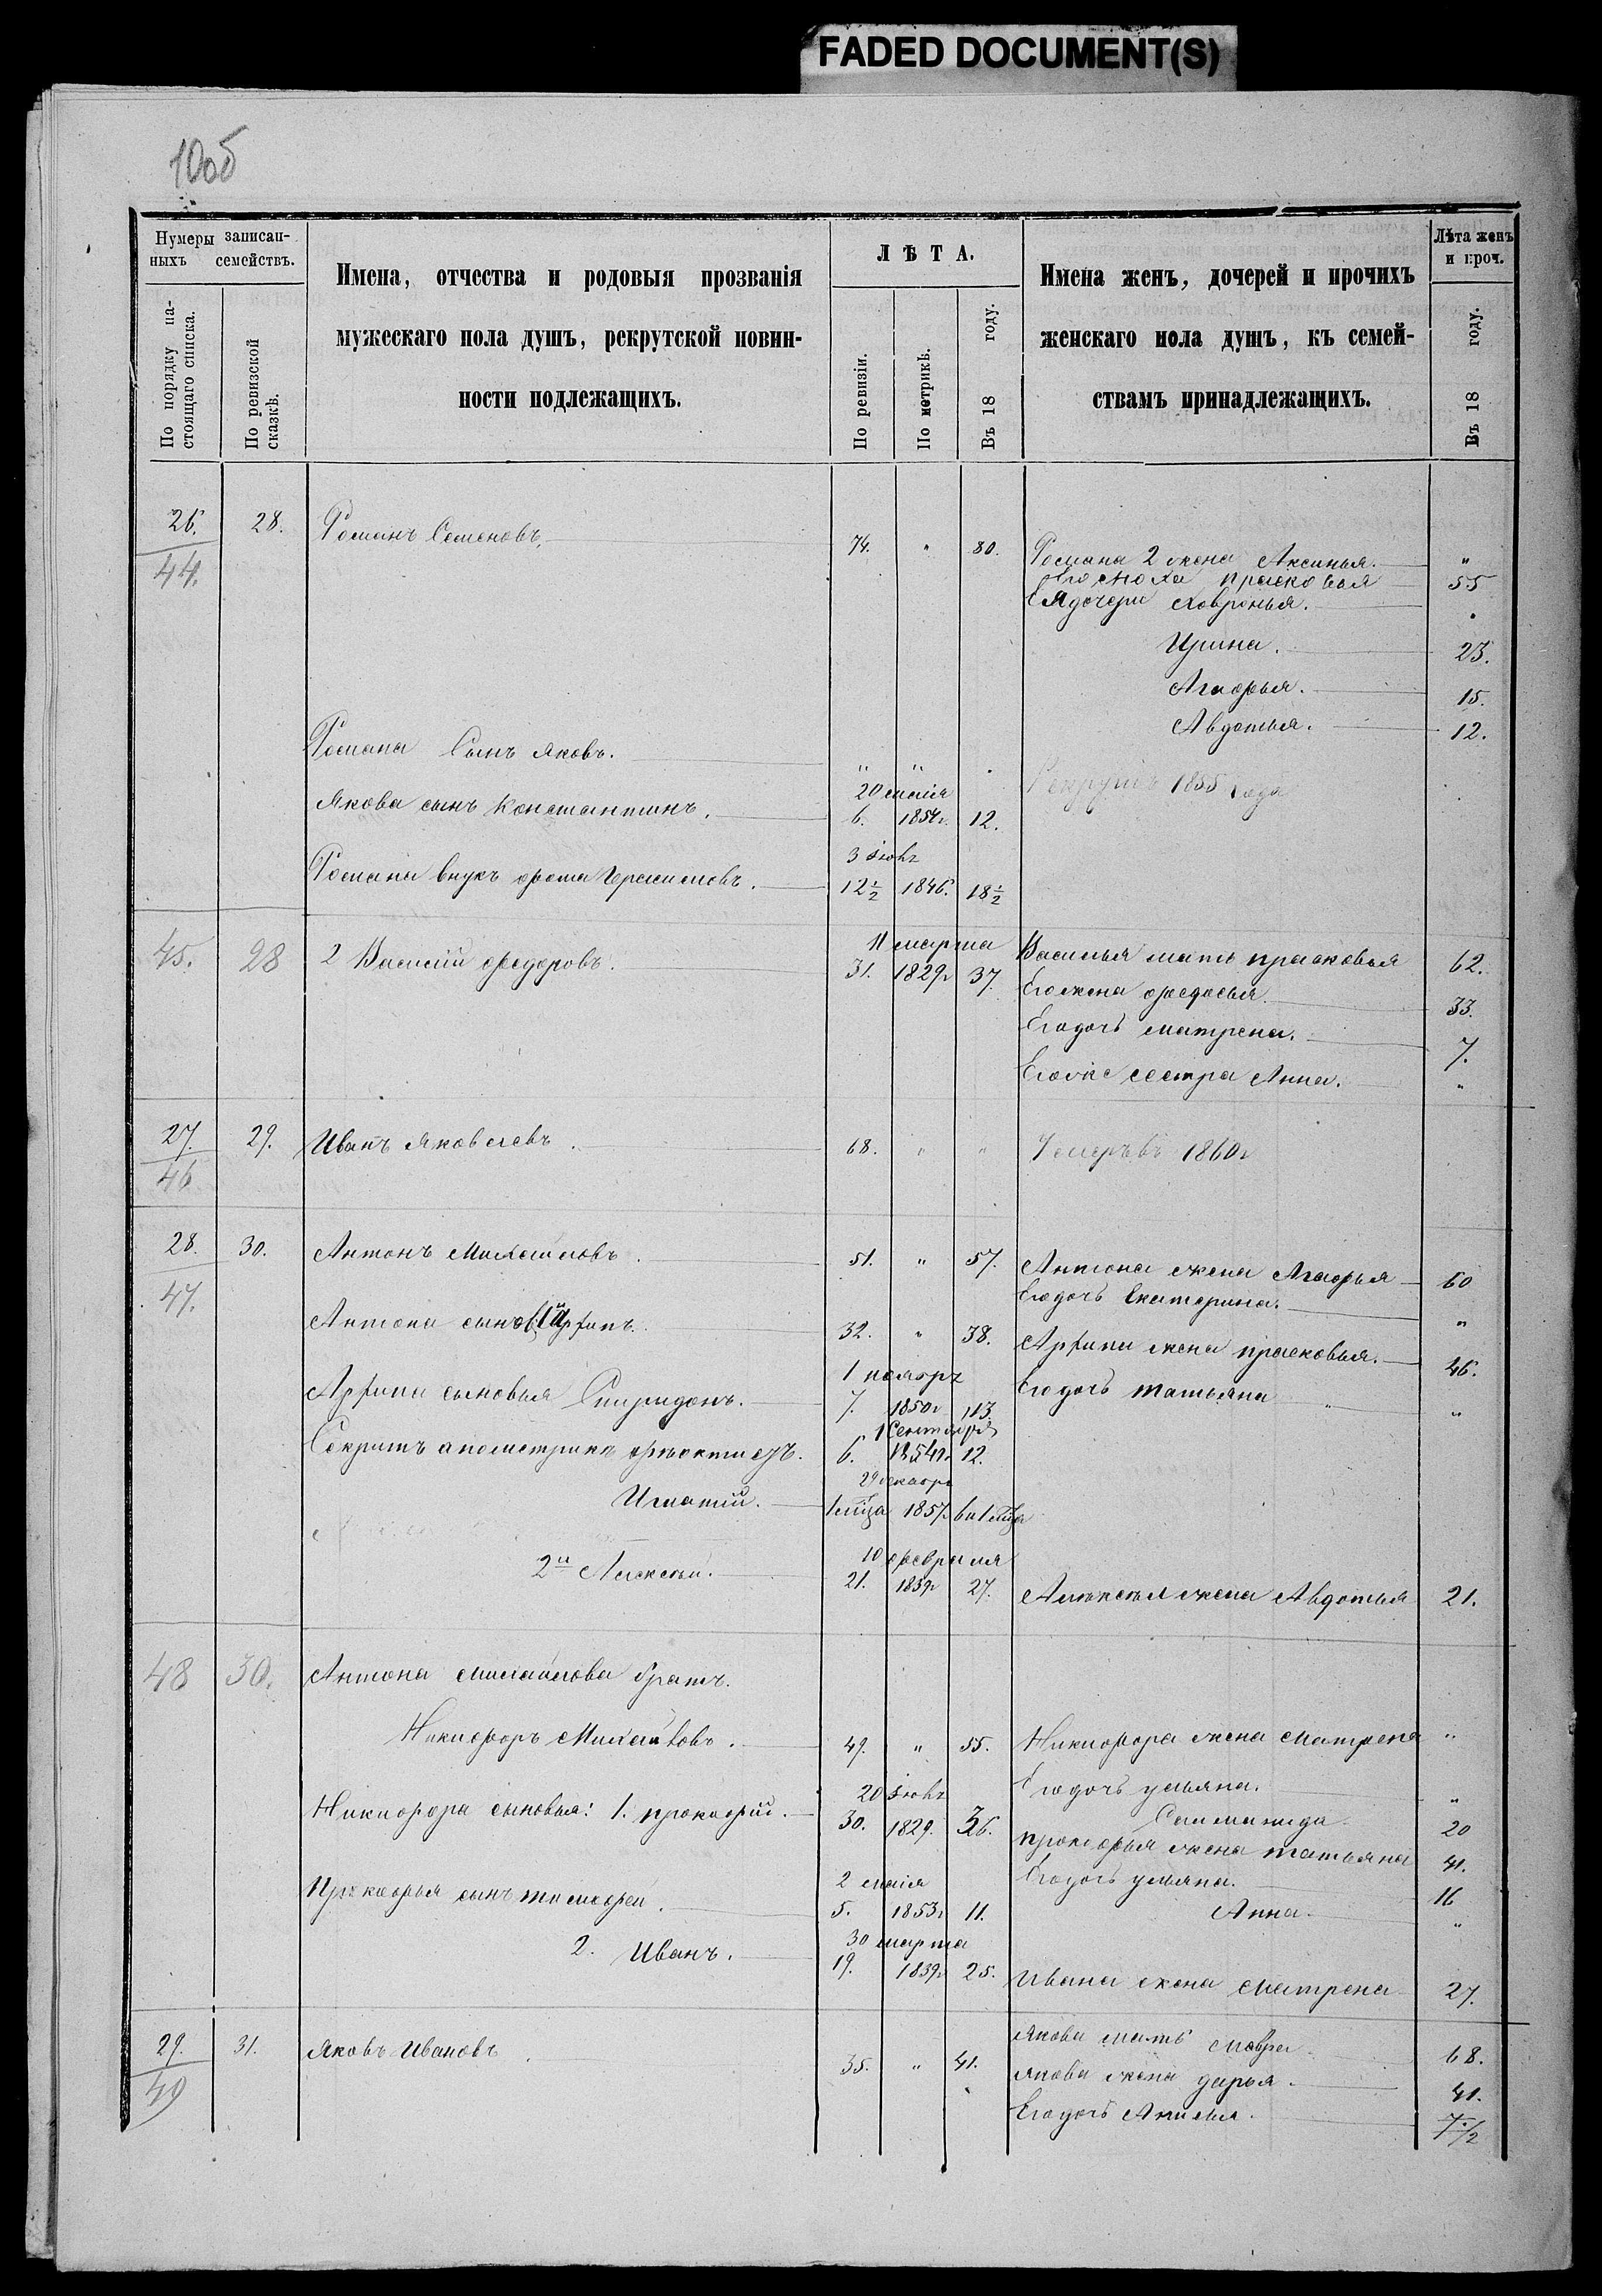 FADED DOCUMENT(S)
10об
Нумеры записан-
ныхъ семействъ.
По порядку на-
стоящаго списка.
По ревизской
сказкѣ.
Имена, отчества и родовыя прозванія
мужескаго пола душъ, рекрутской повин-
ности подлежащихъ.
ЛѢТА.
По ревизіи.
По метрикѣ.
Въ 18 году.
Имена женъ, дочерей и прочихъ
женскаго пола душъ, къ семей-
ствамъ принадлежащихъ.
Лѣта женъ
и проч.
Въ 18 году.
26. 28. Романъ Семеновъ. 74. " 80. Романа 2 жена Аксинья. "
44. Его сноха прасковья 55
Ея дочери Ховронья. "
Ирина. 23.
Агафья. 15.
Авдотья. 12.
Романа Сынъ Яковъ. " " Рекрутъ 1855 года
20 маія
Якова сынъ Константинъ. 6. 1854г. 12.
3 Іюня
Романа внукъ фома Герасимовъ. 12½ 1846. 18½
11 марта
45. 28 2 Василій федоровъ. 31. 1829г 37. Василья мать прасковья 62.
Его жена федосья 33.
Его дочь матрена. 7.
Его же сестра Анна. "
27. 29. Иванъ Яковлевъ. 68. " " Умеръ въ 1860г
46
28. 30. Антонъ Михайловъ. 51. " 57. Антона жена Агафья 60
47. Его дочь Екатерина. "
Антона сынов. 1й Арфипъ. 32. " 38. Арфипа жена прасковья. 46.
1 ноября
Арфипа сыновья Спиридонъ. 7. 1850г 13. Его дочь татьяна "
1 Сентября
6. 1854г. 12.
29 декабря
Игнатій. 1 мѣца 1857. 6 и 1 мѣца
10 февраля
2й Алексѣй. 21. 1839г 27. Алексѣя жена Авдотья 21.
48 30. Антона михайлова братъ.
Никифоръ Михайловъ. 49. " 55. Никифора жена матрена "
20 Іюня Его дочь ульяна. "
Никифора сыновья: 1. прокофій. 30. 1829. 36. 20
прокофья жена татьяна 41.
2 маія Его дочь ульяна. 16
Прокофья сынъ тимофей. 5. 1853г 11. Анна. "
30 марта
2. Иванъ. 19. 1839г 25. Ивана жена матрена 27.
29. 31. Яковъ Ивановъ. 35. " 41. Якова мать мавра 68.
49 Якова жена дарья. 41.
Его дочь Анисья. 7½